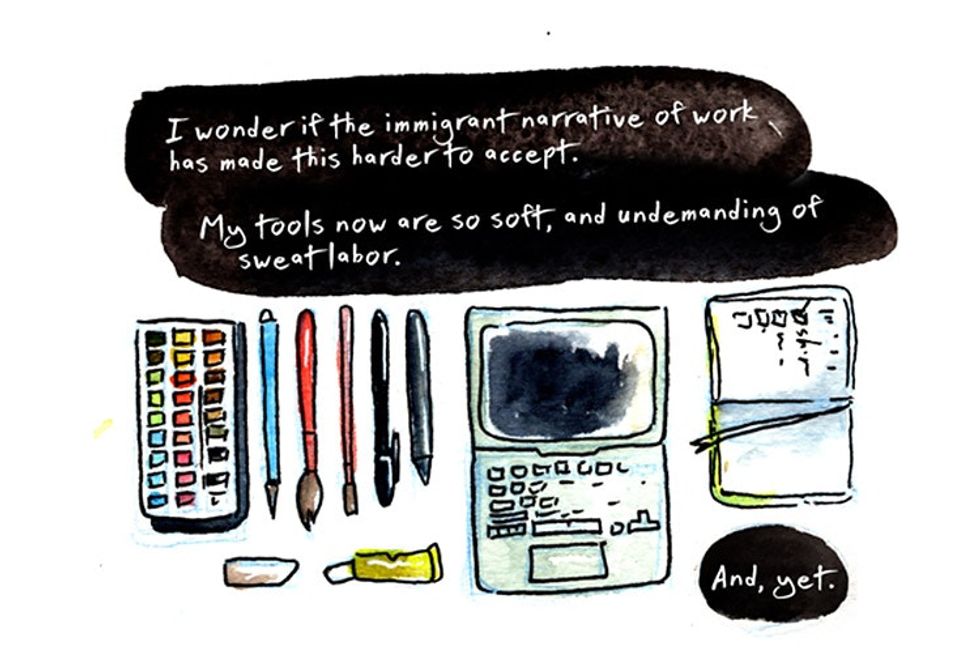 I wonder if the immigrant narrative of work
has made this harder to accept.
My tools now are so soft, and undemanding of
sweat labor.
And, yet.